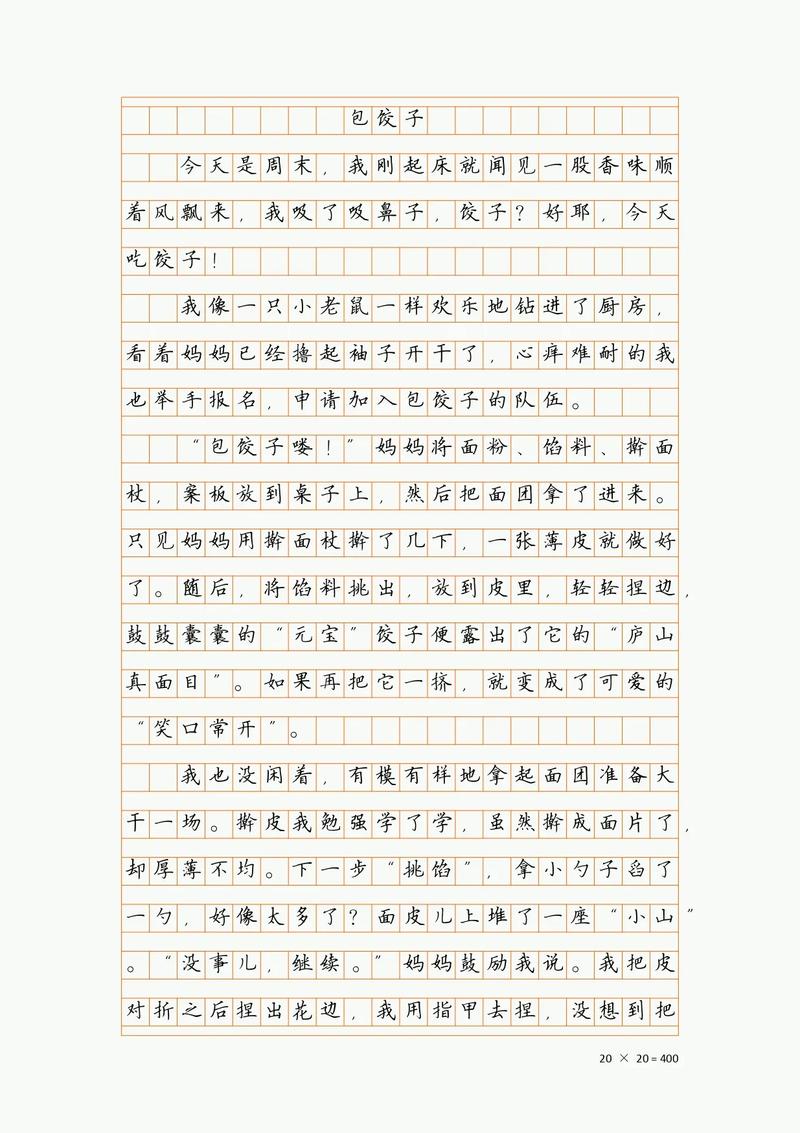 包饺子
今天是周末，我刚起床就闻见一股香味顺
着风飘来，我吸了吸鼻子，饺子？好耶，今天
吃饺子！
我像一只小老鼠一样欢乐地钻进了厨房，
看着妈妈已经撸起袖子开干了，心痒难耐的我
也举手报名，申请加入包饺子的队伍。
“包饺子喽！”妈妈将面粉、馅料、擀面
杖，案板放到桌子上，然后把面团拿了进来。
只见妈妈用擀面杖擀了几下，一张薄皮就做好
了。随后，将馅料挑出，放到皮里，轻轻捏边，
鼓鼓囊囊的“元宝”饺子便露出了它的“庐山
真面目”。如果再把它一挤，就变成了可爱的
“笑口常开”。
我也没闲着，有模有样地拿起面团准备大
干一场。擀皮我勉强学了学，虽然擀成面片了，
却厚薄不均。下一步“挑馅”，拿小勺子舀了
一勺，好像太多了？面皮儿上堆了一座“小山”
。“没事儿，继续。”妈妈鼓励我说。我把皮
对折之后捏出花边，我用指甲去捏，没想到把
20 × 20=400